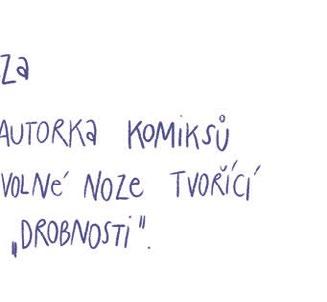 za
AUTORKa KOMiKSŮ
VOLNÉ NOZE TVOŘÍCÍ
„DROBNOSTi".